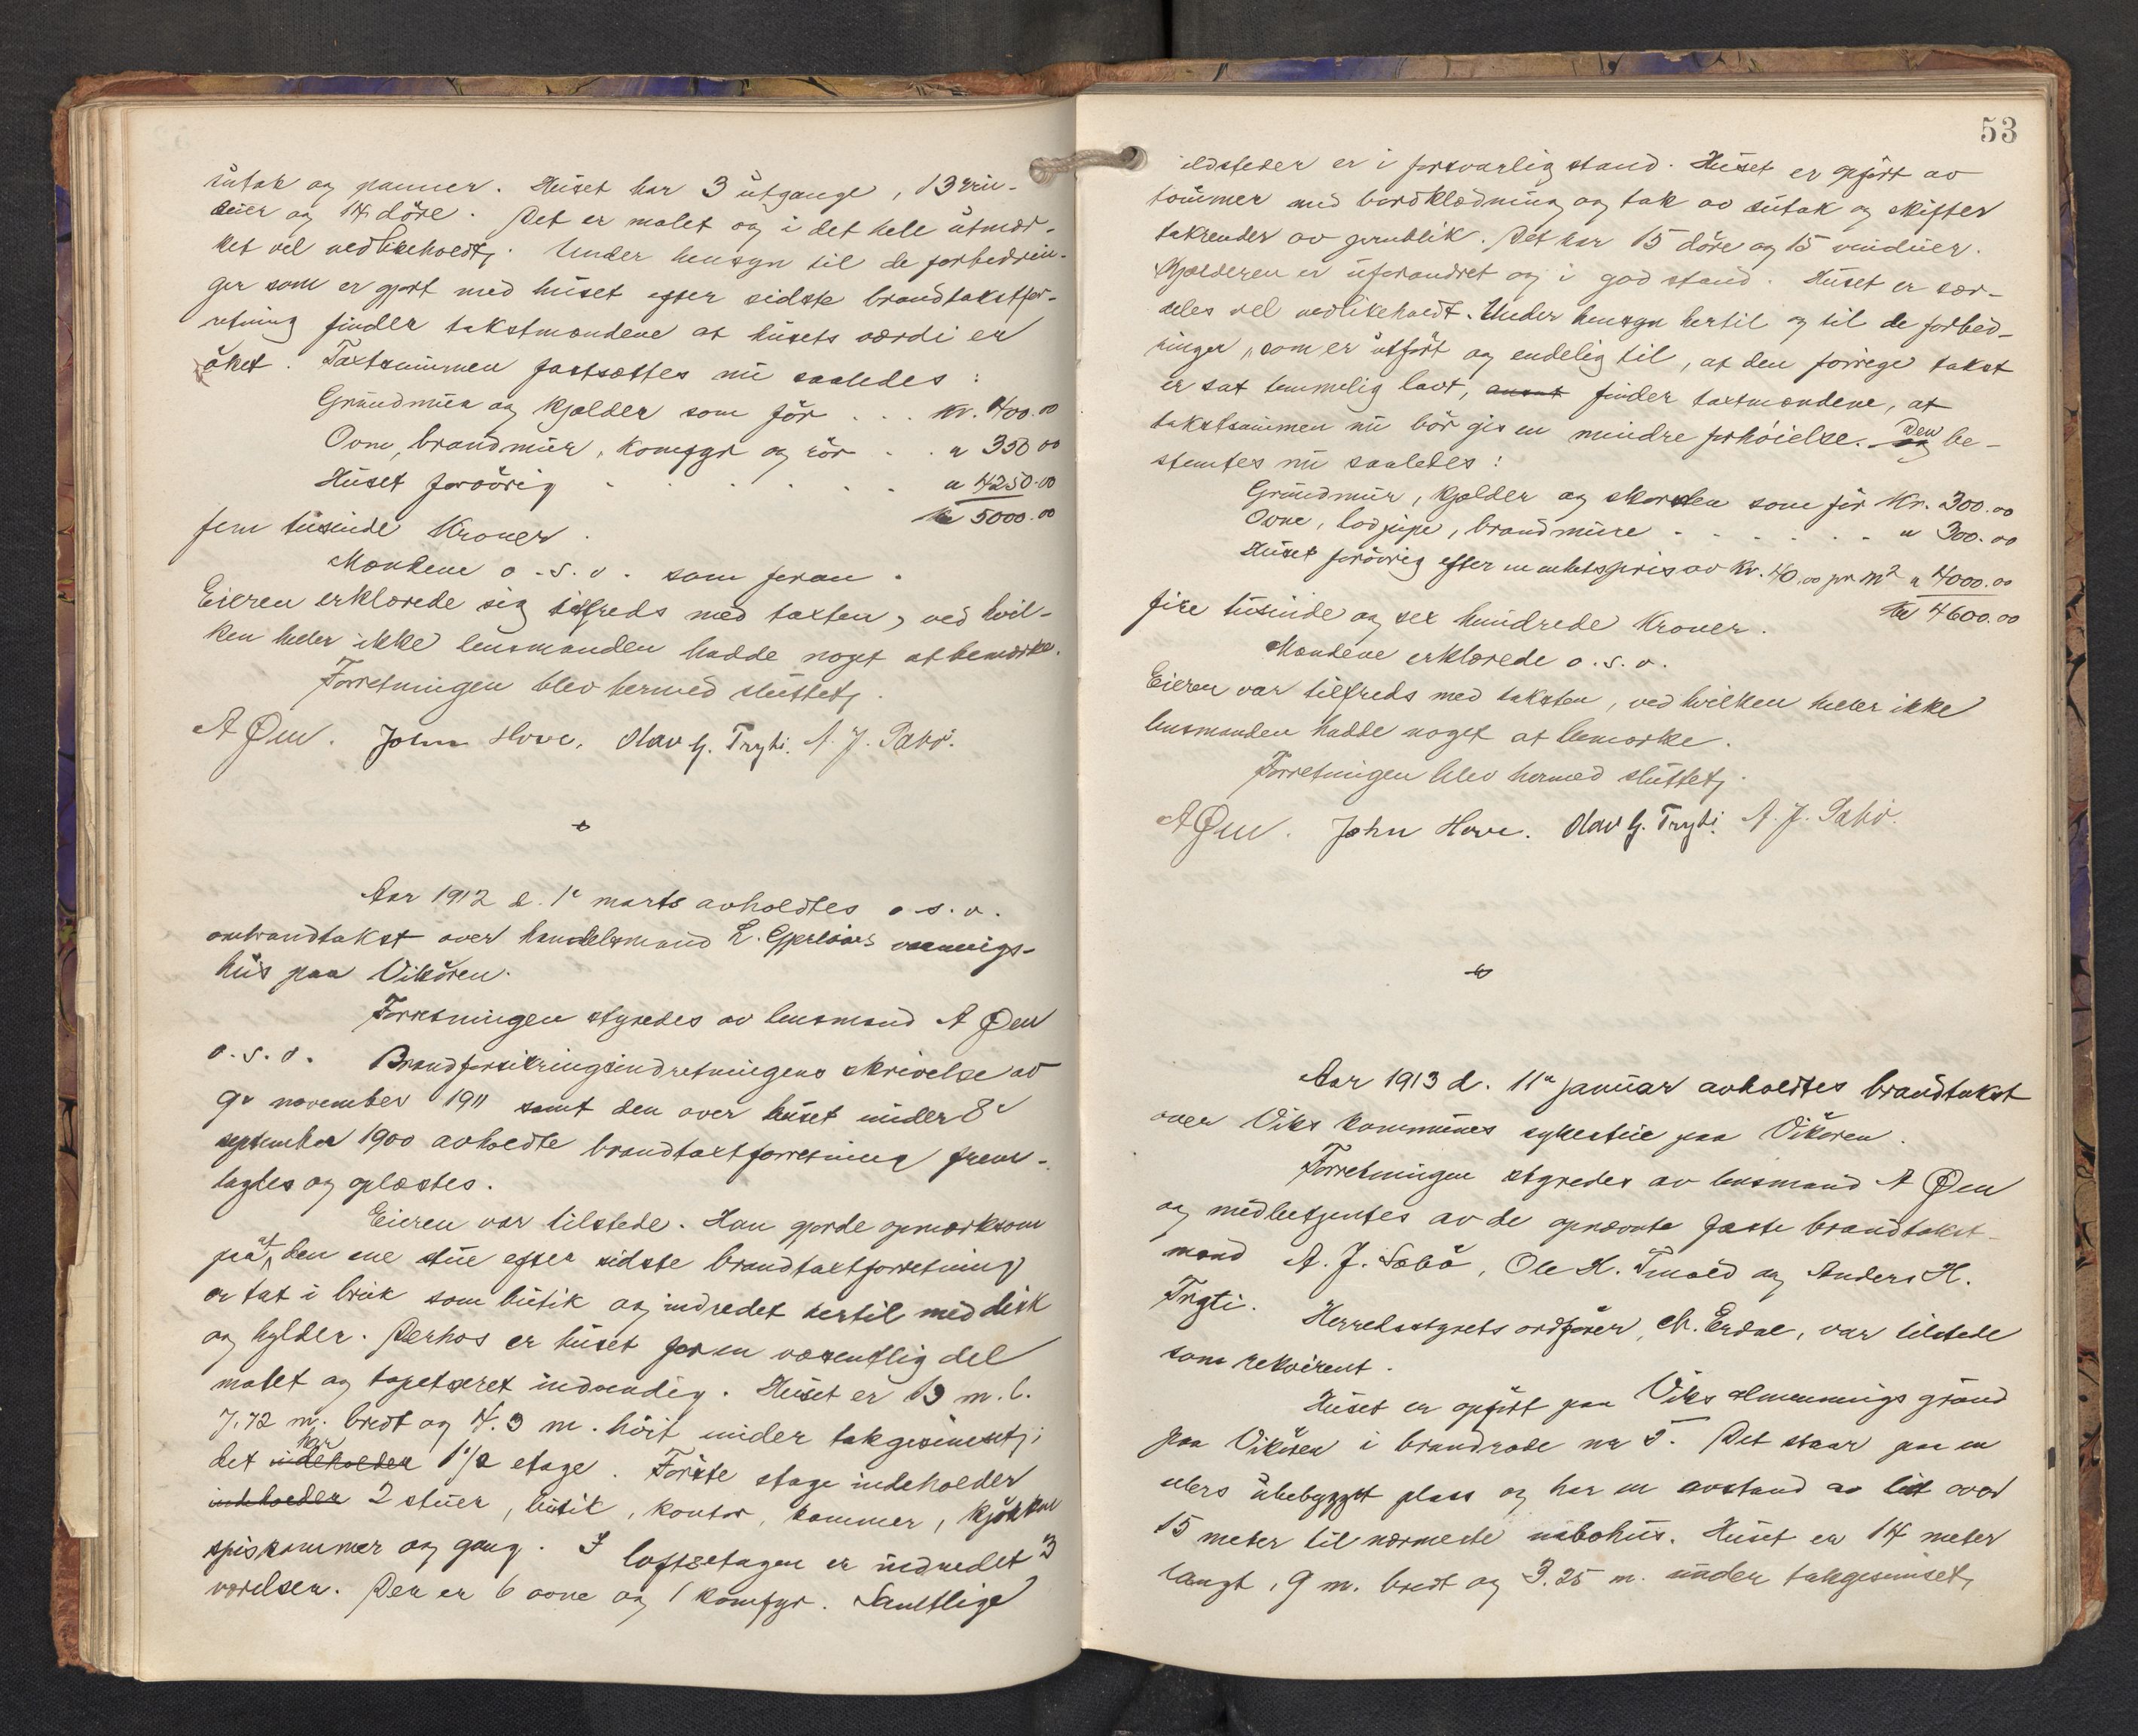 sutak og panner. Huset har 3 utgange, 13 vin-
duer og 14 döre. Det er malet og i det hele utmær-
ket vel vedlikeholdt. Under hensyn til de forbedrin-
ger som er gjort med huset efter sidste brandtakstfor-
retning finder takstmændene at husets værdi er
öket. Taxtsummen fastsættes nu saaledes:
Grundmur og kjælder som för . . . kr. 400.00
Ovne, brandmur, komfyr og rör . . " 350 00
Huset forövrig . . . . . . . " 4250.00
Kr 5000.00
fem tusinde Kroner.
Mændene o.s.v. som foran.
Eieren erklærede sig tilfreds med taxten, ved hvil-
ken heller ikke lensmanden hadde noget at bemærke.
Forretningen blev hermed sluttet.
A Øen. John Hove. Olav G. Tryti. A. J. Sæbö.
Aar 1912 d. 1ste marts avholdtes o.s.v.
ombrandtakst over handelsmand L. vaanings-
hus paa Vikören.
Forretningen styredes av lensmand A Øen
o.s.v. Brandforsikringsindretningens skrivelse av
9de november 1911 samt den over huset under 8de
september 1900 avholdte brandtaxtforretning frem-
lagdes og oplæstes.
Eieren var tilstede. Han gjorde opmerksom
paa at den ene stue efter sidste brandtaxtforretning
er tat i bruk som butik og indredet hertil med disk
og hylder. Derhos er huset for en væsentlig del
malet og tapetseret indvendig. Huset er 13 m. l.
7.72 m. bredt og 4.3 m. höit under takgesimset;
det indeholder har 1 1/2 etage. Förste etage indeholder
indeholder 2 stuer, butik, kontor, kammer, kjökken
spiskammer og gang. I loftsetagen er indredet 3
værelser. Der er 6 ovne og 1 komfyr. Samtlige
53
ildsteder er i forsvarlig stand. Huset er opfört av
tömmer med bordklædning og tak av sutak og skifter
takrender av jernblik. Det har 15 döre og 15 vinduer.
Kjælderen er uforandret og i god stand. Huset er sær-
deles vel vedlikeholdt. Under hensyn hertil og til de forbed-
ringer, som er utfört og endelig til, at den forrige takst
er sat temmelig lavt, finder taxtmændene, at
takstsummen nu bör gis en mindre forhöielse. Den be-
stemtes nu saaledes:
Grundmur, kjælder og skorsten som för Kr. 300.00
Ovne, lodpipe, brandmure . . . . . . " 300.00
Huset forövrig efter en enhetspris av Kr. 40.00 pr m2 " 4000.00
Kr 4600.00
fire tusinde og sex hundrede Kroner.
Mændene erklærede o.s.v.
Eieren var tilfreds med taksten, ved hvilken heller ikke
lensmanden hadde noget at bemærke.
Forretningen blev hermed sluttet.
A Øen. John Hove. Olav G. Tryti. A. J. Sæbö.
Aar 1913 d. 11te januar avholdtes brandtakst
over Viks kommunes sykestue paa Vikören.
Forretningen styredes av lensmand A Øen
og medbetjentes av de opnævnte faste brandtakst-
mænd A. J. Sæbö, Ole H. Tenold og Anders H.
Tryti. Herredsstyrets ordförer, M. Erdal, var tilstede
som rekvirent.
Huset er opfört paa Viks almennings grund
paa Vikören i brandrode nr 5. Det staar paa en
ellers ubebygget plass og har en avstand av litt over
15 meter til nærmeste nabohus. Huset er 14 meter
langt, 9 m. bredt og 3.25 m. under takgesimset,